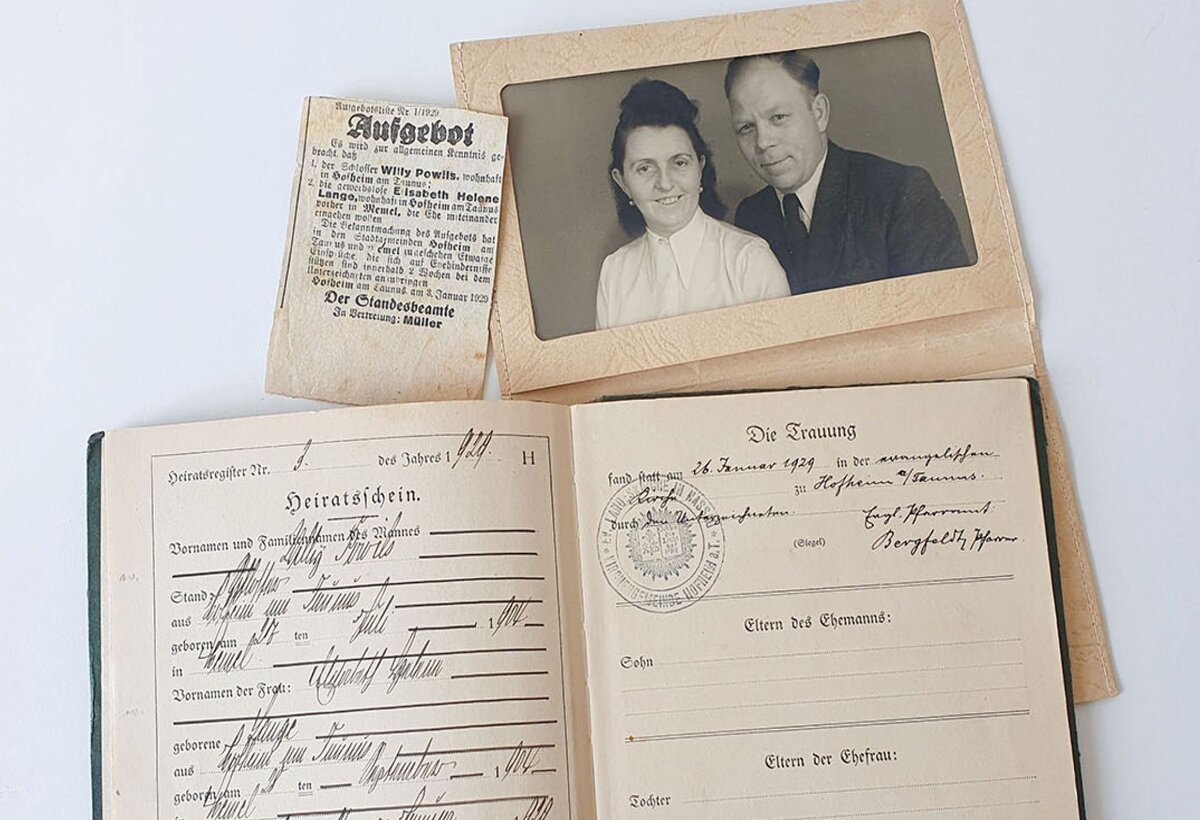 Aufgebotsliste Nr. 1/1929
Aufgebot
Es wird zur allgemeinen Kenntnis ge-
bracht, daß
1. der Schlosser Willy Powils, wohnhaft
in Hofheim am Taunus;
2. die gewerbslose Elisabeth Helene
Lange, wohnhaft in Hofheim am Taunus
vorher in Memel, die Ehe miteinander
eingehen wollen
Die Bekanntmachung des Aufgebots hat
in den Stadtgemeinden Hofheim am
Taunus und Memel zu geschehen Etwaige
Einsprüche, die sich auf Ehehindernisse
stützen sind innerhalb 2 Wochen bei dem
Unterzeichneten anzubringen
Hofheim am Taunus, am 3. Januar 1929
Der Standesbeamte
In Vertretung: Müller
Heiratsregister Nr. 3. des Jahres 1929. H
Heiratsschein.
Vornamen und Familiennamen des Mannes
Willy Powils
Stand Schlosser
aus Hofheim am Taunus
geboren am 27 ten Juli 1904
in Memel
Vornamen der Frau: Elisabeth Helene
geborene Lange
aus Hofheim am Taunus
geboren am ten September 1904
in Memel
Die Trauung
fand statt am 26. Januar 1929 in der evangelischen
Kirche zu Hofheim a/Taunus.
durch den Unterzeichneten.
Evgl. Pfarramt
(Siegel) Bergfeldt, Pfarrer
EV. LANDESKIRCHE IN NASSAU
KIRCHENGEMEINDE HOFHEIM a.T.
Eltern des Ehemanns:
Sohn
Eltern der Ehefrau:
Tochter